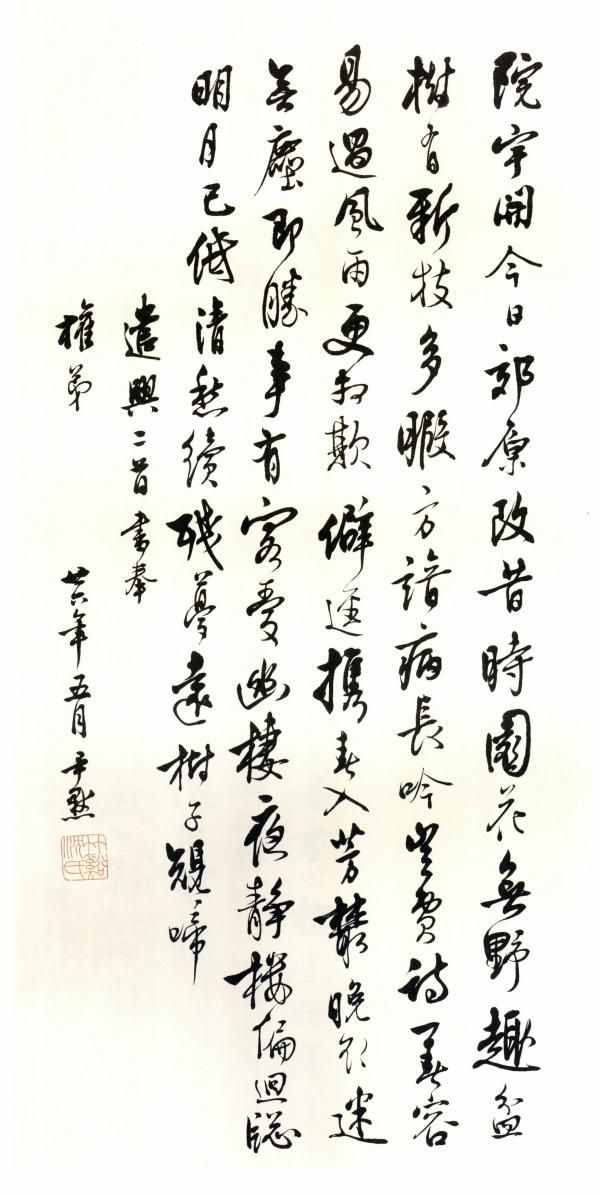 院宇開今日郊原改昔時園花無野趣盆
樹有新枝多暇方諳病長吟豈費詩一春容
易過風雨更相欺僻逕攜春入芳叢晚欲迷
無塵即勝事有客愛幽棲夜靜樓偏迥牕
明月已低清愁續殘夢遠樹子規啼
遣興二首書奉
權弟 廿六年五月 尹默
竹谿沈氏